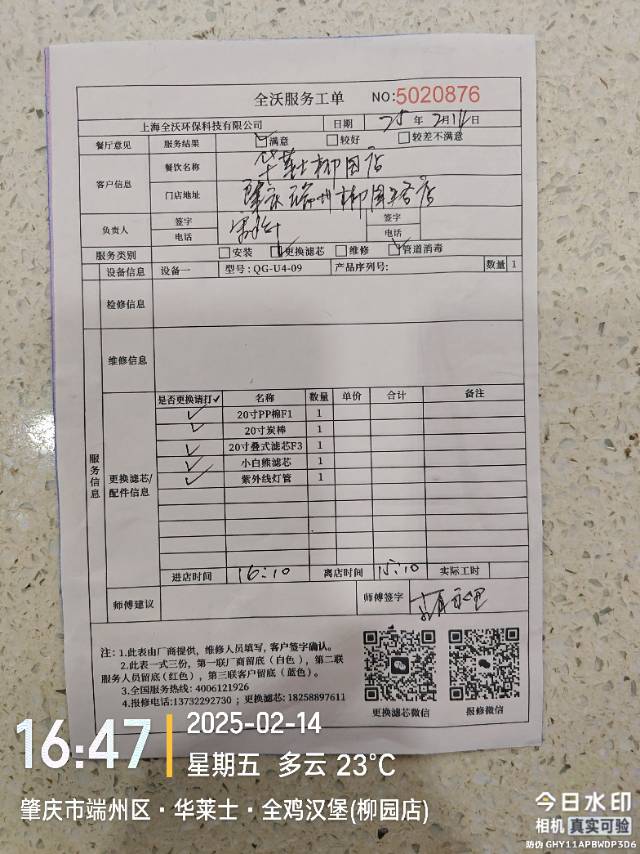 全沃服务工单 NO:5020876
上海全沃环保科技有限公司 日期 25 年 2月14日
餐厅意见 服务结果 满意 较好 较差不满意
客户信息 餐饮名称 华莱士柳园店
门店地址 肇庆端州柳园路店
负责人 签字 签字
电话 电话
服务类别 安装 更换滤芯 维修 管道消毒
设备信息 设备一 型号: QG-U4-09 产品序列号: 数量 1
检修信息
维修信息
服务信息
是否更换请打✓ 名称 数量 单价 合计 备注
✓ 20寸PP棉F1 1
✓ 20寸炭棒 1
✓ 20寸叠式滤芯F3 1
✓ 小白熊滤芯 1
✓ 紫外线灯管 1
更换滤芯/配件信息
进店时间 16:10 离店时间 15:10 实际工时
师傅建议 师傅签字
注: 1.此表由厂商提供, 维修人员填写, 客户签字确认。
2.此表一式三份, 第一联厂商留底(白色), 第二联
服务人员留底(红色), 第三联客户留底(蓝色)。
3.全国服务热线: 4006121926
4.报修电话:13732292730 ; 更换滤芯: 18258897611
更换滤芯微信 报修微信
16:47 2025-02-14
星期五 多云 23°C
肇庆市端州区·华莱士·全鸡汉堡(柳园店)
今日水印
相机 真实可验
防伪 GHY11APBWDP3D6